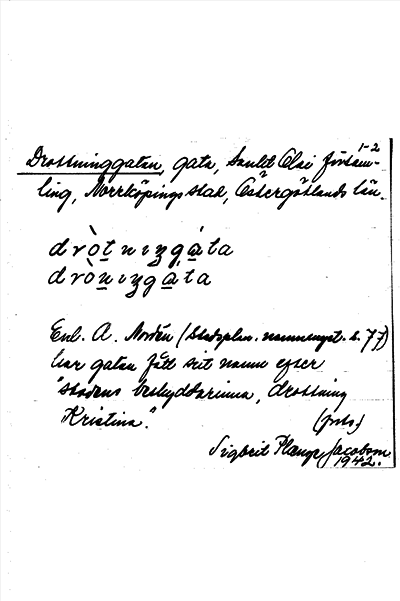 1-2
Drottninggatan, gata, Sankt Olai försam-
ling, Norrköpings stad, Östergötlands län.
dròtnıŋgàta
drònıŋgàta
Enl. A. Nordén (Stadsplan. namnenyst. s. 77)
har gatan fått sitt namn efter
"stadens beskyddarinna, drottning
Kristina".
Sigbrit Plænge Jacobson
1942.